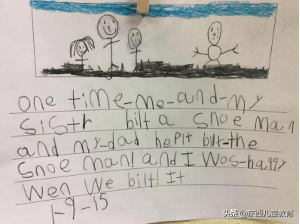 one time-me-and-my
sistr bilt a snoe man
and my-dad helpt bilt-the
snoe man! and I wos-happy
Wen We bilt! It
1-9-15
头条@东西儿童教育